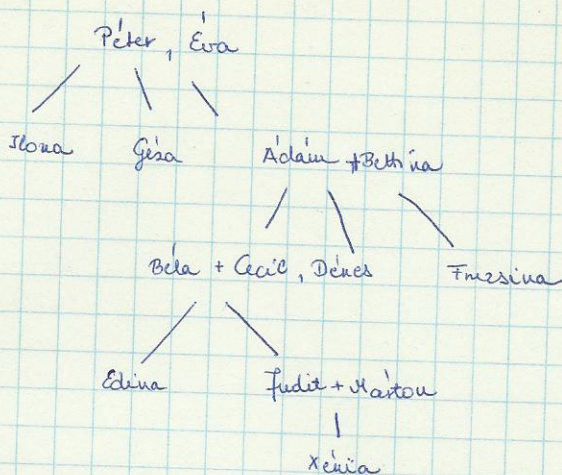 Péter, Éva
Ilona Géza Ádám + Bettina
Béla + Cecil, Dénes Fruzsina
Edina Judit + Márton
Xénia